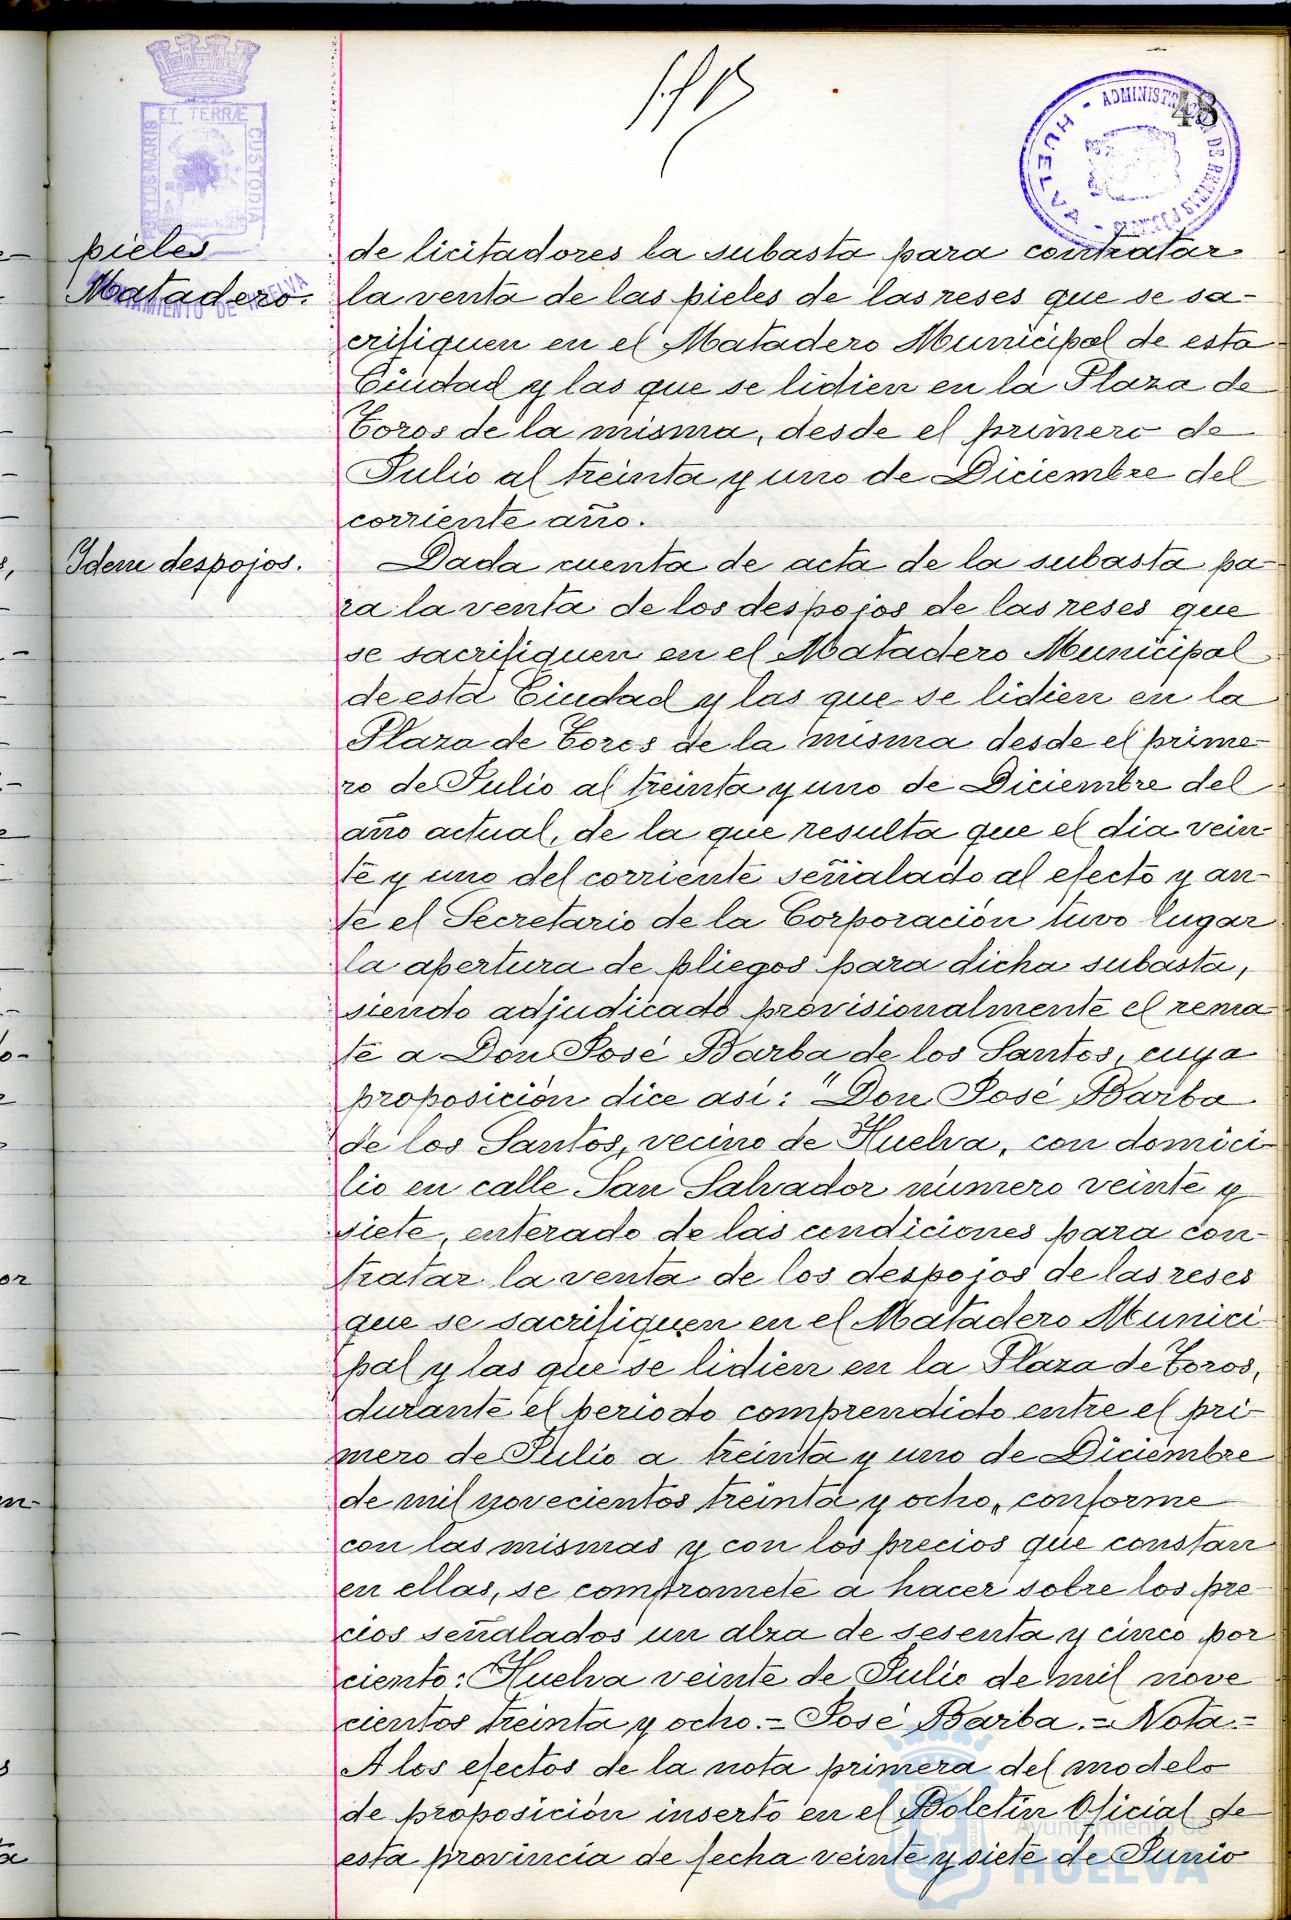 48
ET TERRÆ
PORTUS MARIS
CUSTODIA
AYUNTAMIENTO DE HUELVA
ADMINISTRACION DE RENTAS PUBLICAS - HUELVA -
pieles
Matadero.
de licitadores la subasta para contratar
la venta de las pieles de las reses que se sa-
crifiquen en el Matadero Municipal de esta
Ciudad y las que se lidien en la Plaza de
Toros de la misma, desde el primero de
Julio al treinta y uno de Diciembre del
corriente año.
Idem despojos.
Dada cuenta de acta de la subasta pa-
ra la venta de los despojos de las reses que
se sacrifiquen en el Matadero Municipal
de esta Ciudad y las que se lidien en la
Plaza de Toros de la misma desde el prime-
ro de Julio al treinta y uno de Diciembre del
año actual, de la que resulta que el dia vein-
te y uno del corriente señalado al efecto y an-
te el Secretario de la Corporación tuvo lugar
la apertura de pliegos para dicha subasta,
siendo adjudicado provisionalmente el rema-
te a Don José Barba de los Santos, cuya
proposición dice así: "Don José Barba
de los Santos, vecino de Huelva, con domici-
lio en calle San Salvador número veinte y
siete, enterado de las condiciones para con-
tratar la venta de los despojos de las reses
que se sacrifiquen en el Matadero Munici-
pal y las que se lidien en la Plaza de Toros,
durante el periodo comprendido entre el pri-
mero de Julio a treinta y uno de Diciembre
de mil novecientos treinta y ocho, conforme
con las mismas y con los precios que constan
en ellas, se compromete a hacer sobre los pre-
cios señalados un alza de sesenta y cinco por
ciento: Huelva veinte de Julio de mil nove
cientos treinta y ocho.= José Barba.= Nota.=
A los efectos de la nota primera del modelo
de proposición inserto en el Boletín Oficial de
esta provincia de fecha veinte y siete de Junio
Ayuntamiento de
HUELVA